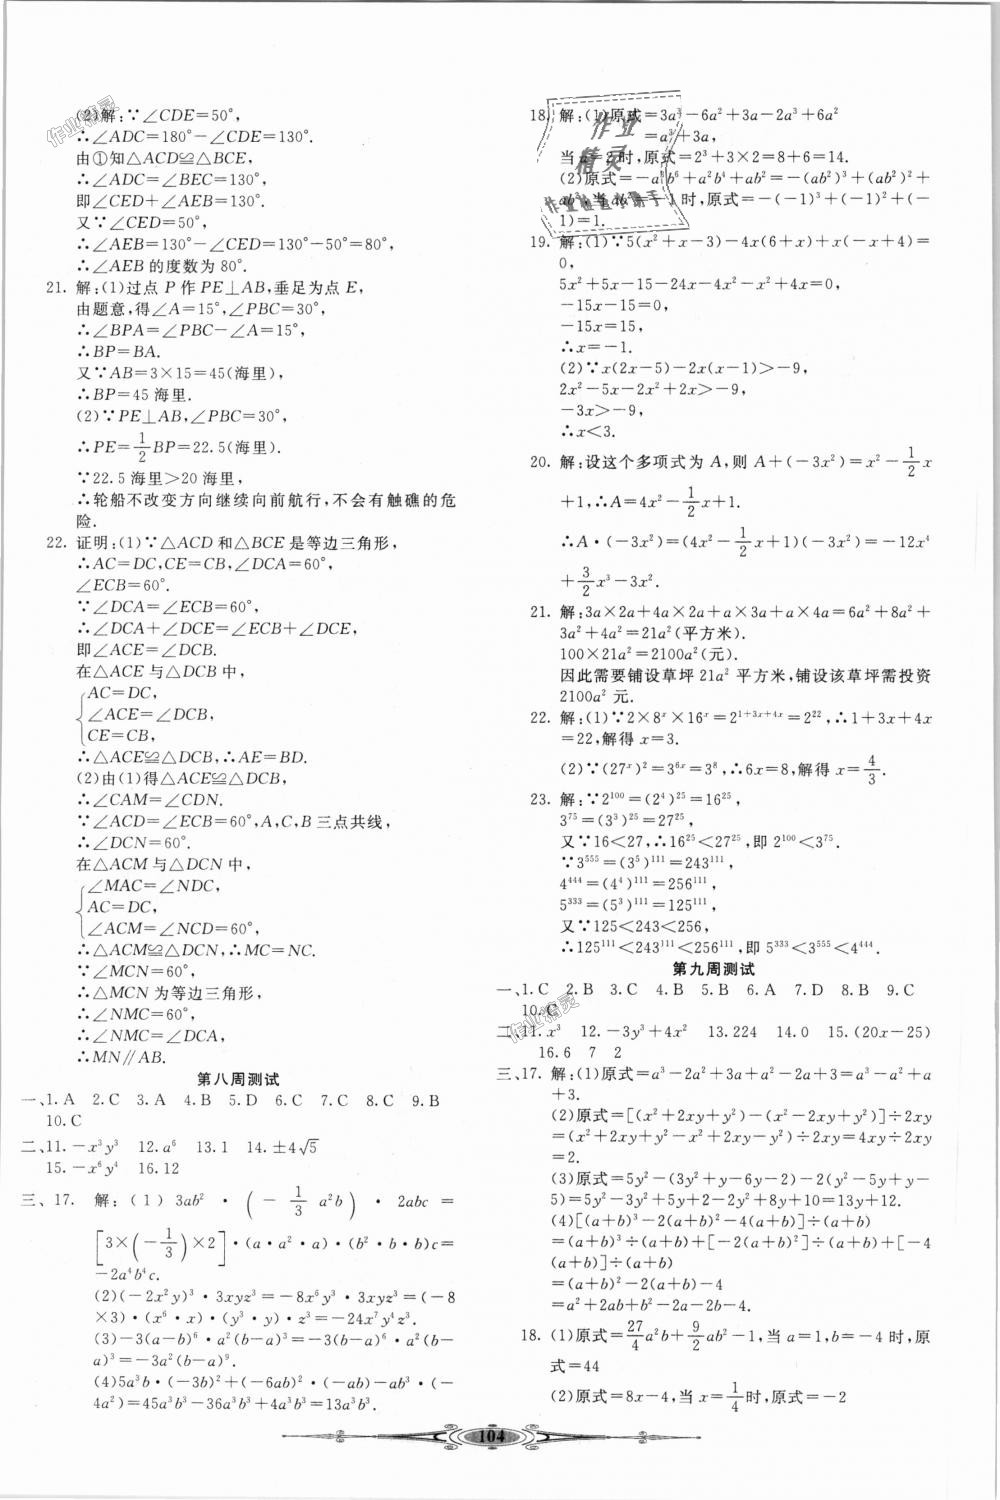 (2)解:∵∠CDE=50°,
∴∠ADC=180°-∠CDE=130°.
由①知△ACD≌△BCE,
∴∠ADC=∠BEC=130°,
即∠CED+∠AEB=130°.
又∵∠CED=50°,
∴∠AEB=130°-∠CED=130°-50°=80°,
∴∠AEB 的度数为 80°.
21. 解:(1)过点 P 作 PE⊥AB,垂足为点 E,
由题意,得∠A=15°,∠PBC=30°,
∴∠BPA=∠PBC-∠A=15°,
∴BP=BA.
又∵AB=3×15=45(海里),
∴BP=45 海里.
(2)∵PE⊥AB,∠PBC=30°,
∴PE=1/2BP=22.5(海里).
∵22.5 海里>20 海里,
∴轮船不改变方向继续向前航行,不会有触礁的危
险.
22. 证明:(1)∵△ACD 和△BCE 是等边三角形,
∴AC=DC,CE=CB,∠DCA=60°,
∠ECB=60°.
∵∠DCA=∠ECB=60°,
∴∠DCA+∠DCE=∠ECB+∠DCE,
即∠ACE=∠DCB.
在△ACE 与△DCB 中,
AC=DC,
∠ACE=∠DCB,
CE=CB,
∴△ACE≌△DCB,∴AE=BD.
(2)由(1)得△ACE≌△DCB,
∴∠CAM=∠CDN.
∵∠ACD=∠ECB=60°,A,C,B 三点共线,
∴∠DCN=60°.
在△ACM 与△DCN 中,
∠MAC=∠NDC,
AC=DC,
∠ACM=∠NCD=60°,
∴△ACM≌△DCN,∴MC=NC.
∵∠MCN=60°,
∴△MCN 为等边三角形,
∴∠NMC=60°,
∴∠NMC=∠DCA,
∴MN∥AB.
第八周测试
一、1. A 2. C 3. A 4. B 5. D 6. C 7. C 8. C 9. B
10. C
二、11. -x³y³ 12. a⁶ 13. 1 14. ±4√5
15. -x⁶y⁴ 16. 12
三、17. 解:(1) 3ab² · (-1/3 a²b) · 2abc =
[3×(-1/3)×2]·(a·a²·a)·(b²·b·b)c=
-2a⁴b⁴c.
(2)(-2x²y)³·3xyz³=-8x⁶y³·3xyz³=(-8
×3)·(x⁶·x)·(y³·y)·z³=-24x⁷y⁴z³.
(3)-3(a-b)⁶·a²(b-a)³=-3(b-a)⁶·a²(b-
a)³=-3a²(b-a)⁹.
(4)5a³b·(-3b)²+(-6ab)²·(-ab)-ab³·(-
4a)²=45a³b³-36a³b³+4a³b³=13a³b³.
18. 解:(1)原式=3a³-6a²+3a-2a³+6a²
=a³+3a,
当 a=2 时,原式=2³+3×2=8+6=14.
(2)原式=-a³b⁶+a²b⁴+ab²=-(ab²)³+(ab²)²+
ab²,当 ab²=-1 时,原式=-(-1)³+(-1)²+(-
1)=1.
19. 解:(1)∵5(x²+x-3)-4x(6+x)+x(-x+4)=
0,
5x²+5x-15-24x-4x²-x²+4x=0,
-15x-15=0,
-15x=15,
∴x=-1.
(2)∵x(2x-5)-2x(x-1)>-9,
2x²-5x-2x²+2x>-9,
-3x>-9,
∴x<3.
20. 解:设这个多项式为 A,则 A+(-3x²)=x²-1/2x
+1,∴A=4x²-1/2x+1.
∴A·(-3x²)=(4x²-1/2x+1)(-3x²)=-12x⁴
+3/2x³-3x².
21. 解:3a×2a+4a×2a+a×3a+a×4a=6a²+8a²+
3a²+4a²=21a²(平方米).
100×21a²=2100a²(元).
因此需要铺设草坪 21a² 平方米,铺设该草坪需投资
2100a² 元.
22. 解:(1)∵2×8ˣ×16ˣ=2¹⁺³ˣ⁺⁴ˣ=2²²,∴1+3x+4x
=22,解得 x=3.
(2)∵(27ˣ)²=3⁶ˣ=3⁸,∴6x=8,解得 x=4/3.
23. 解:∵2¹⁰⁰=(2⁴)²⁵=16²⁵,
3⁷⁵=(3³)²⁵=27²⁵,
又∵16<27,∴16²⁵<27²⁵,即 2¹⁰⁰<3⁷⁵.
∵3⁵⁵⁵=(3⁵)¹¹¹=243¹¹¹,
4⁴⁴⁴=(4⁴)¹¹¹=256¹¹¹,
5³³³=(5³)¹¹¹=125¹¹¹,
又∵125<243<256,
∴125¹¹¹<243¹¹¹<256¹¹¹,即 5³³³<3⁵⁵⁵<4⁴⁴⁴.
第九周测试
一、1. C 2. B 3. C 4. B 5. B 6. A 7. D 8. B 9. C
10. C
二、11. x³ 12. -3y³+4x² 13. 224 14. 0 15. (20x-25)
16. 6 7 2
三、17. 解:(1)原式=a³-2a²+3a+a²-2a+3=a³-a²+a
+3.
(2)原式=[(x²+2xy+y²)-(x²-2xy+y²)]÷2xy
=(x²+2xy+y²-x²+2xy-y²)÷2xy=4xy÷2xy
=2.
(3)原式=5y²-(3y²+y-6y-2)-2(y²-5y+y-
5)=5y²-3y²+5y+2-2y²+8y+10=13y+12.
(4)[(a+b)³-2(a+b)²-4(a+b)]÷(a+b)
=(a+b)³÷(a+b)+[-2(a+b)²]÷(a+b)+[-4
(a+b)]÷(a+b)
=(a+b)²-2(a+b)-4
=a²+2ab+b²-2a-2b-4.
18. (1)原式=27/4a²b+9/2ab²-1,当 a=1,b=-4 时,原
式=44
(2)原式=8x-4,当 x=1/4时,原式=-2
104
作业精灵
作业
精灵
作业精灵